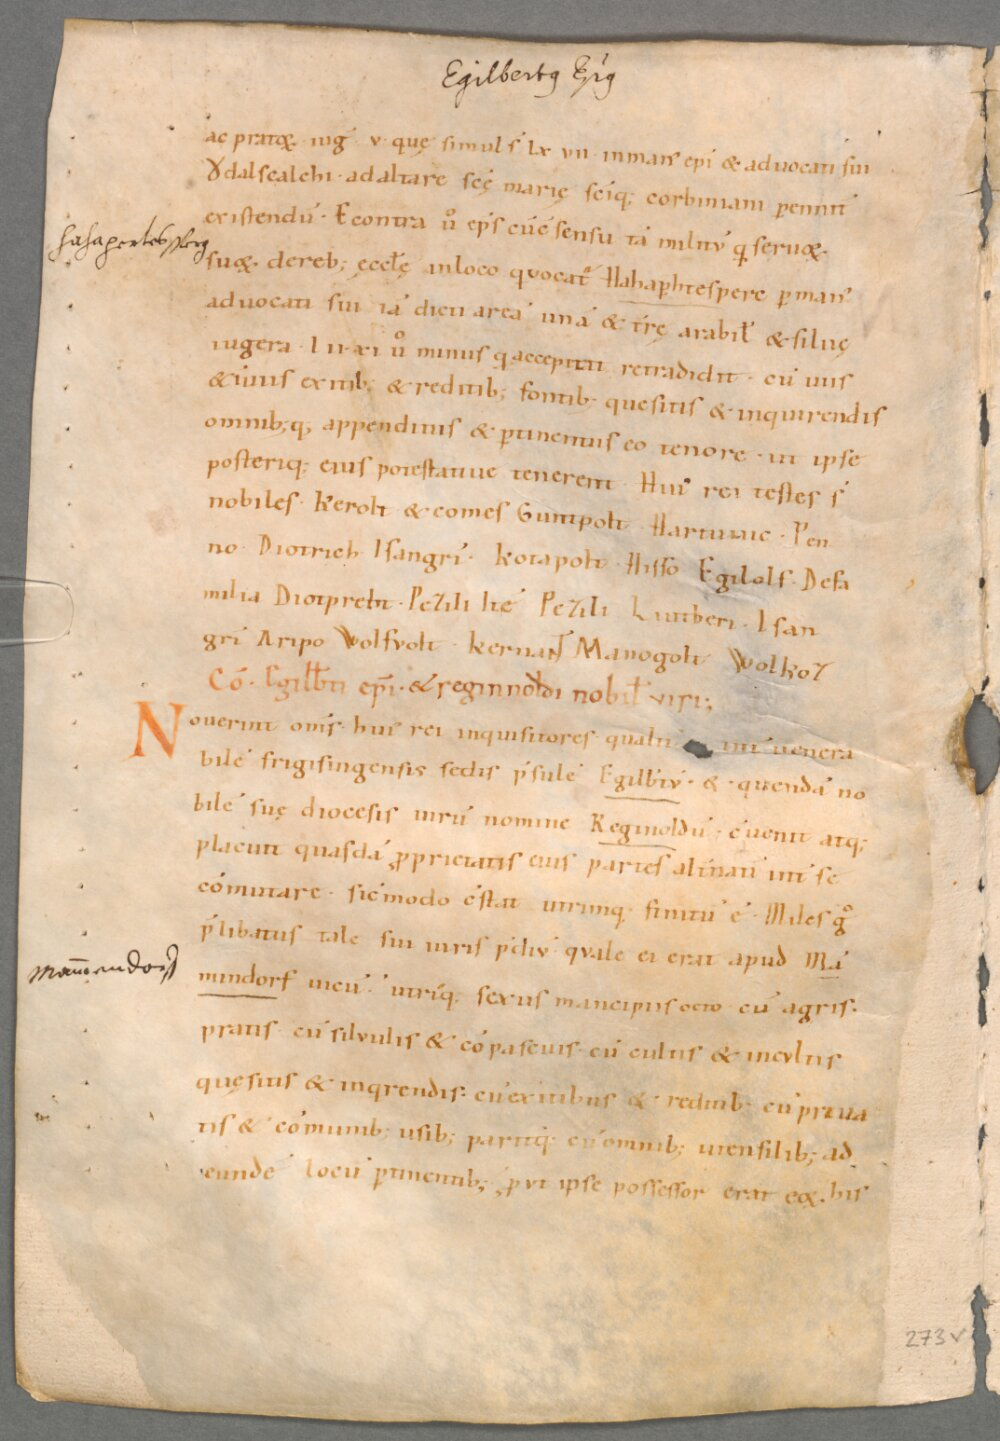 Egilbertꝯ Epꝭ
ac pratoꝝ· iug̅ v· quę simul s̅ lx vii· in man̅ ep̅i & advocati sui
Ŏdalscalchi· ad altare sc̅ę marię sc̅iq; corbiniani p̅enniť
existendu̅· E contra ů ep̅s cu̅ c̅sensu ta̅ militu̅ q̅ servoꝝ·
hahapertesperg
suoꝝ· de reb; ęccl̅ę in loco qvocaẗ Hahap̅htesperc p̅ man̅
advocati sui ia̅ dicti area̅ una̅ & tr̅ę arabil̅ & silvę
iugera· l ii· xi ů minus q̅ accepitit retradidit· cu̅ viis
& i̅viis exitib; & reditib; fontib· quesitis & inquirendis
omnib;q; appenditiis & p̅tinentiis eo tenore· ut ipse
posteriq; eius potestative tenerent· Hui᾽ rei testes s̅
nobiles· Kerolt & comes Guntpolt· Hartuuic· Pen
no· Diotrich Isangri̅· Kotapolt· Hisso Egilolf· De fa
milia Diotpreht· Pezili Ite̅ Pezili Liutheri· Isan
gri̅ Aripo Wolfvolt· Kernan̅t Manogolt Wolkoz
Co̅· Egilb̅ti ep̅i· & reginnoldi nobil̅ viri;
Noverint om̅s· hui᾽ rei inquisitores qualit̅ int̅ venera
bile̅ frigisingensis sedis p̅sule̅ Egilb̅tu̅· & quenda̅ no
bile̅ suę diocesis viru̅ nomine Reginoldu̅· c̅venit atq;
placuit quasda̅ p̅prietatis eius partes alt̅nati̅ int̅ se
co̅mutare· sic modo c̅stat utrimq; finitu̅ e̅· Miles g̊
p̅libatus tale sui iuris p̅diu̅ qvale ei erat apud Ma̅
Mam̅endorf
mindorf vicu̅· utri̅q; sexus mancipiis octo cu̅ agris·
pratis cu̅ silvulis & co̅pascuis· cu̅ cultis & incvltis
quęsitis & inq̅rendis· cu̅ exitibus & reditib· cu̅ priva
tis & co̅munib; usib; parit̅q; cu̅ omnib; utensilib; ad
eunde̅ locu̅ p̅tinentib; p̅ut ipse possessor erat eoꝝ· his
273v